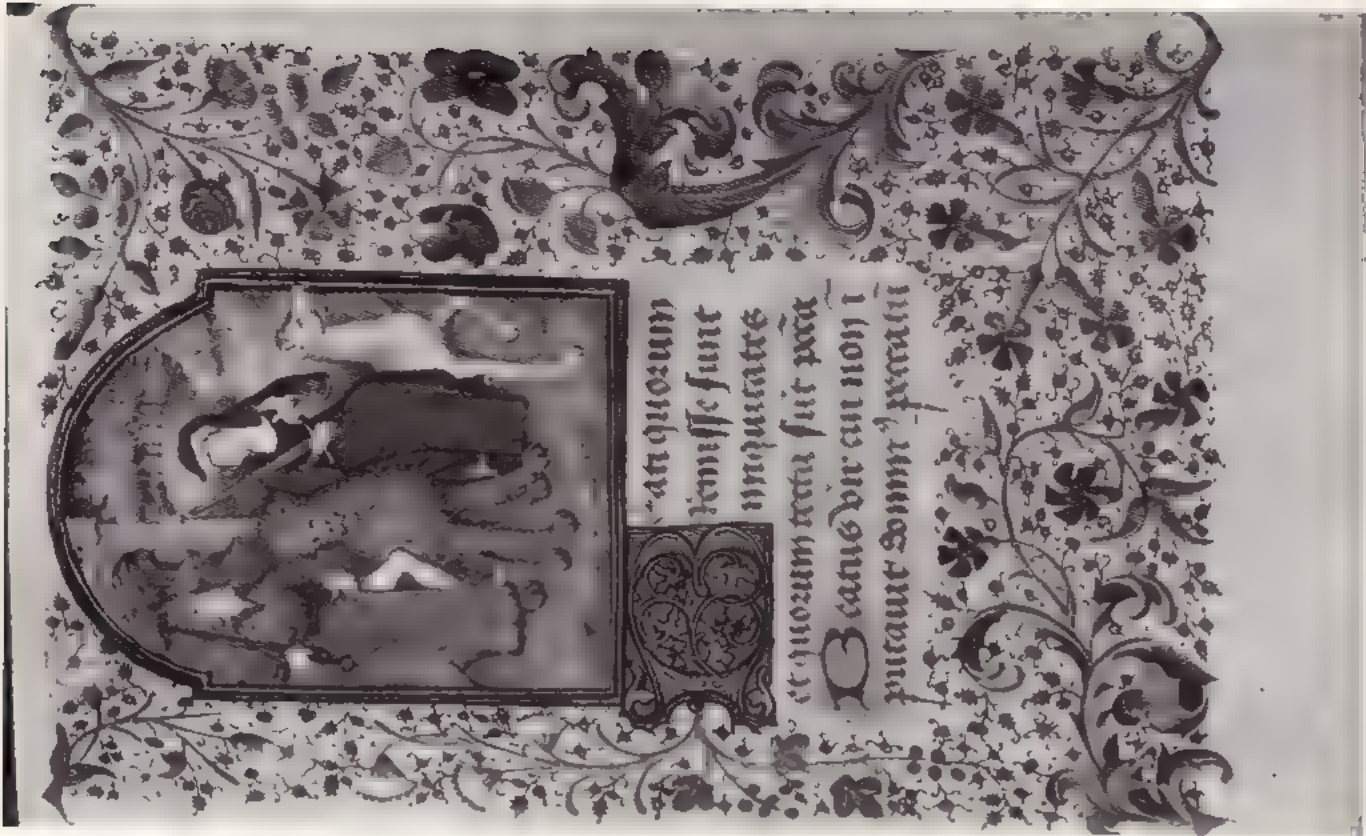 Beati quorum
remisse sunt
iniquitates
et quorum tecta sūt pcca
Beatus vir cui non ī
putauit dominꝰ peccatū